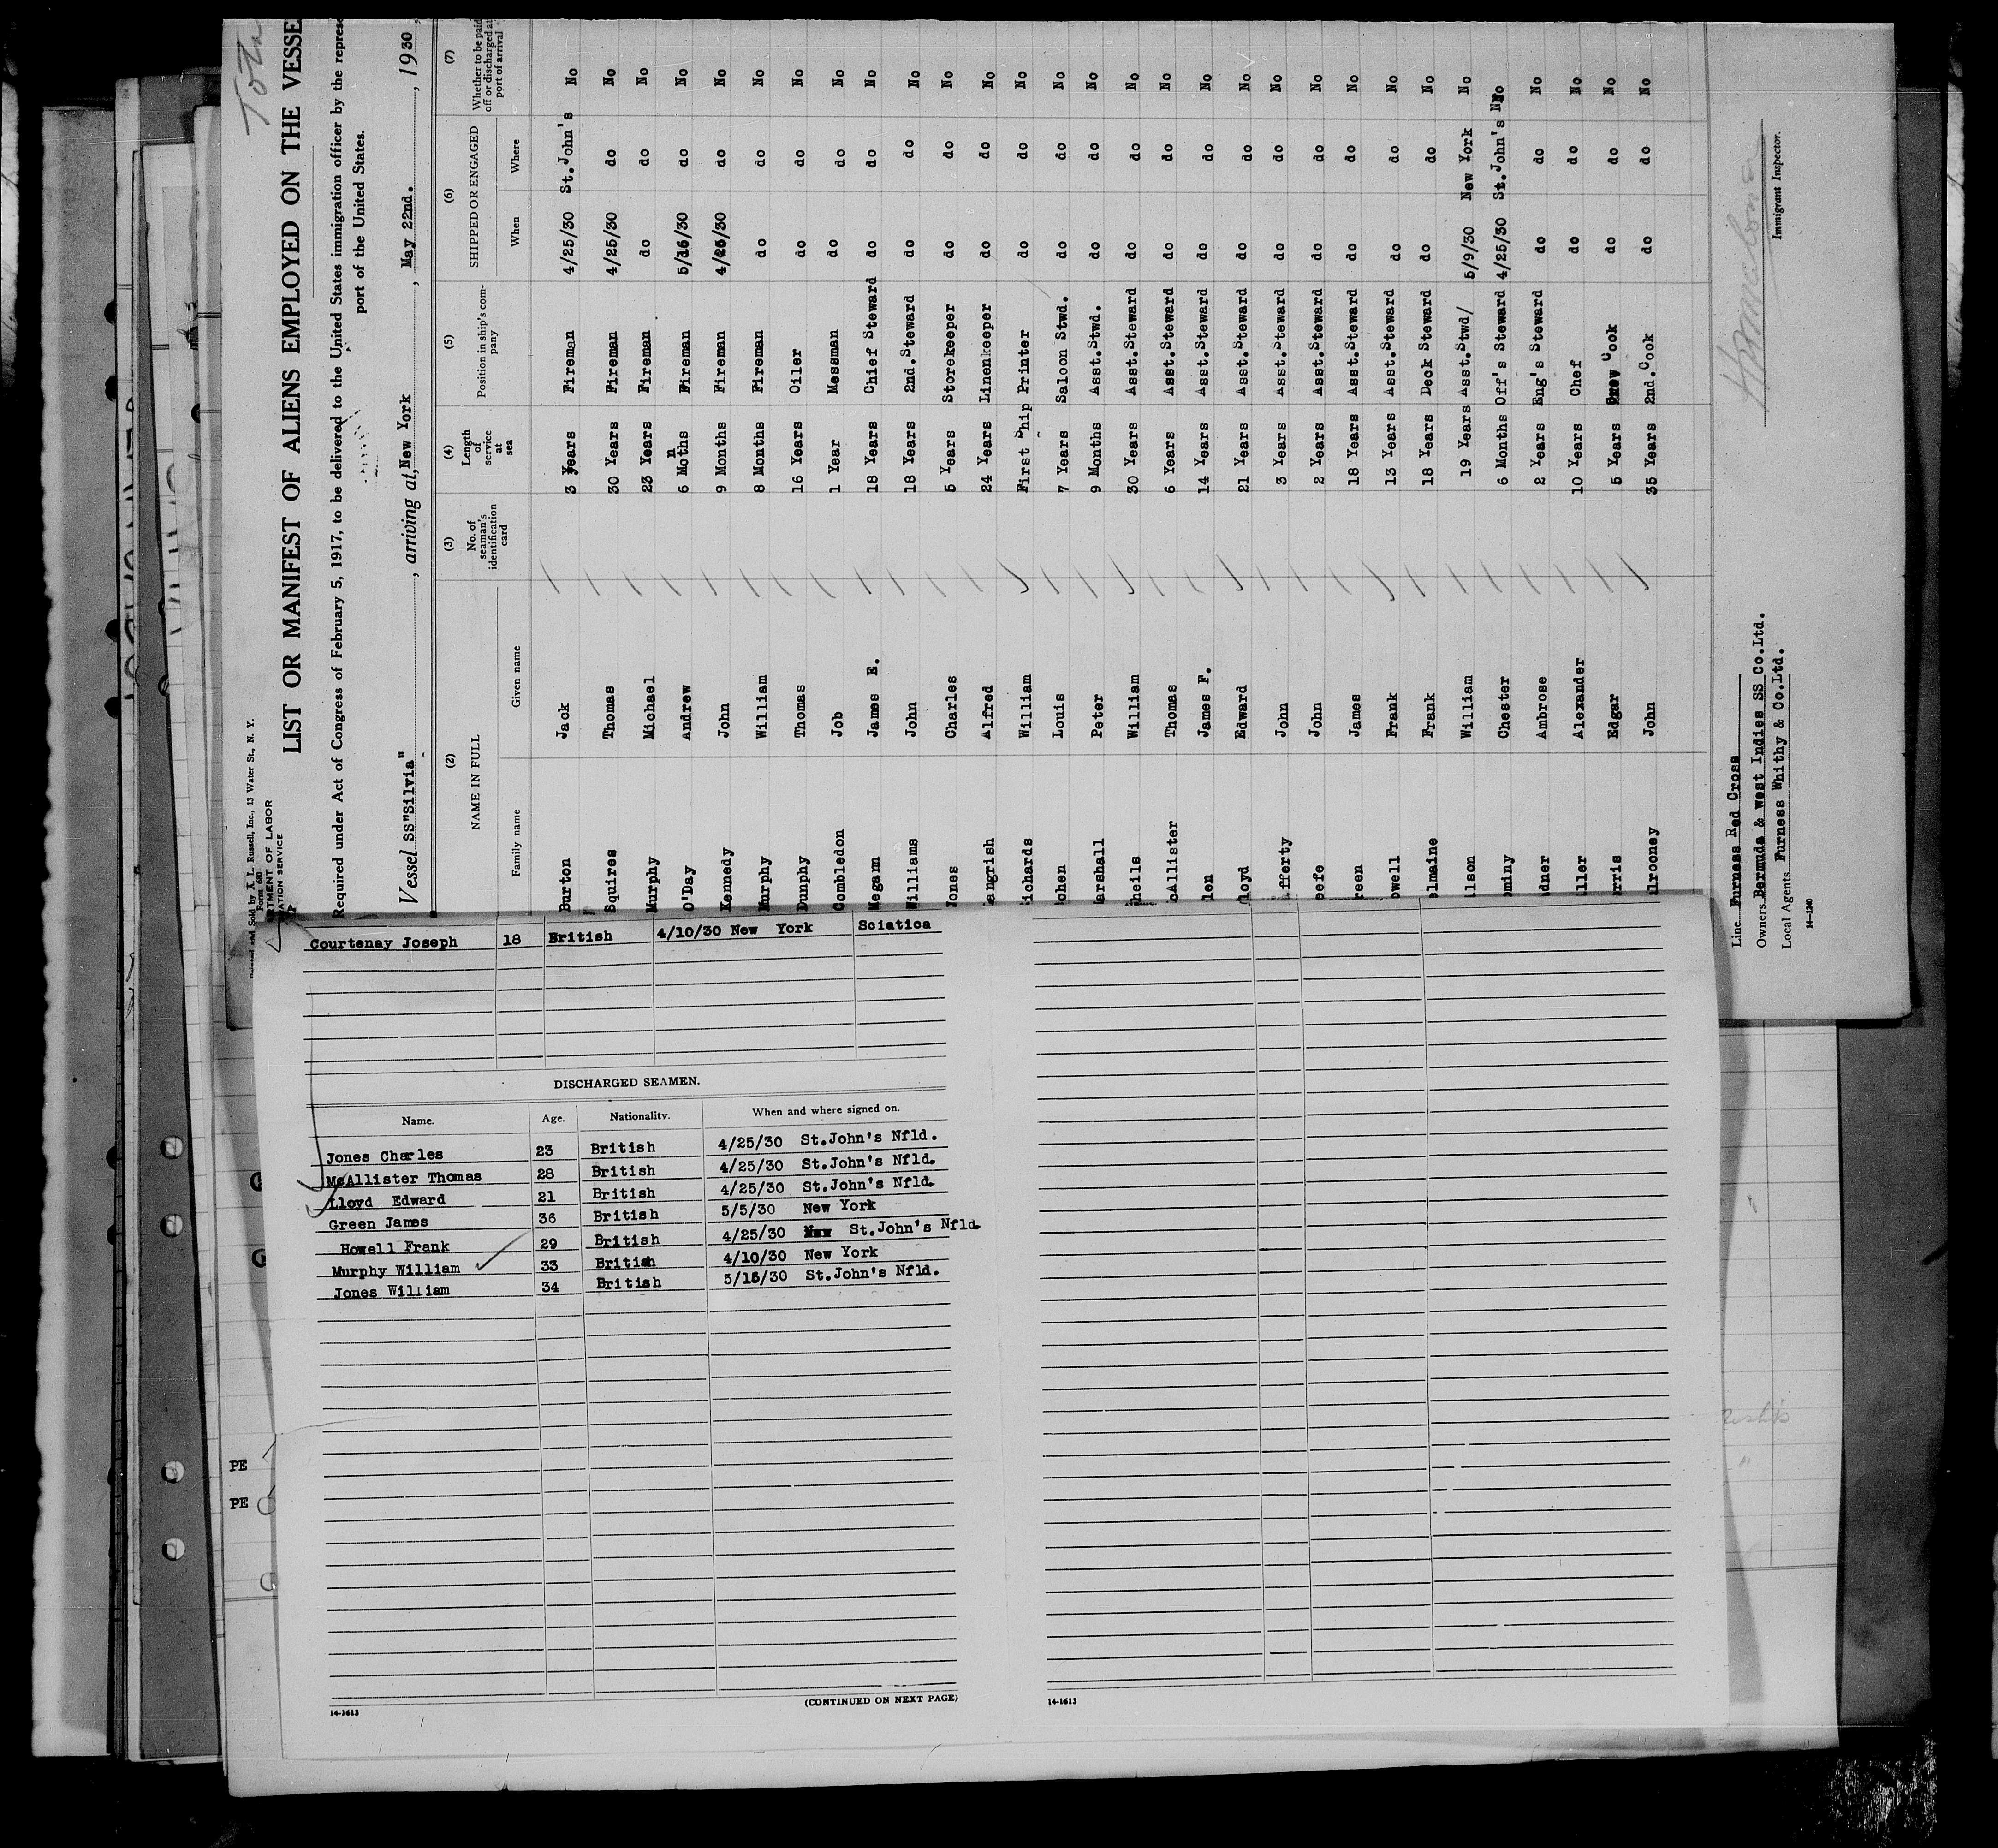 Printed and Sold by A. L. Russell, Inc., 13 Water St., N. Y.
Form 680
LIST OR MANIFEST OF ALIENS EMPLOYED ON THE VESSE
Required under Act of Congress of February 5, 1917, to be delivered to the United States immigration officer by the repres
port of the United States.
Vessel SS"Silvia", arriving at, New York, May 22nd., 1930
(2) (3) (4) (5) (6) (7)
NAME IN FULL No. of seaman's identification card Length of service at sea Position in ship's company SHIPPED OR ENGAGED Whether to be paid off or discharged at port of arrival
Family name Given name When Where
Burton Jack 3 Years Fireman 4/25/30 St.John's No
Squires Thomas 30 Years Fireman 4/25/30 do No
Murphy Michael 23 Years Fireman do do No
O'Day Andrew 6 Moths Fireman 5/16/30 do No
Kennedy John 9 Months Fireman 4/25/30 do No
Murphy William 8 Months Fireman do do No
Dunphy Thomas 16 Years Oiler do do No
Combledon Job 1 Year Messman do do No
Megann James E. 18 Years Chief Steward do do No
Williams John 18 Years 2nd.Steward do do No
Jones Charles 5 Years Storekeeper do do No
angrish Alfred 24 Years Linenkeeper do do No
ichards William First Ship Printer do do No
ohen Louis 7 Years Saloon Stwd. do do No
arshall Peter 9 Months Asst.Stwd. do do No
heils William 30 Years Asst.Steward do do No
cAllister Thomas 6 Years Asst.Steward do do No
len James F. 14 Years Asst.Steward do do No
loyd Edward 21 Years Asst.Steward do do No
fferty John 3 Years Asst.Steward do do No
eefe John 2 Years Asst.Steward do do No
reen James 18 Years Asst.Steward do do No
owell Frank 13 Years Asst.Steward do do No
elmaine Frank 18 Years Deck Steward do do No
lson William 19 Years Asst.Stwd/ 5/9/30 New York No
miny Chester 6 Months Off's Steward 4/25/30 St.John's No
dner Ambrose 2 Years Eng's Steward do do No
ller Alexander 10 Years Chef do do No
rris Edgar 5 Years Crew Cook do do No
lrooney John 35 Years 2nd.Cook do do No
Line Furness Red Cross
Owners Bermuda & West Indies SS Co.Ltd.
Local Agents Furness Whithy & Co.Ltd.
14-1240
Immigrant Inspector.
Courtenay Joseph 18 British 4/10/30 New York Sciatica
DISCHARGED SEAMEN.
Name. Age. Nationality. When and where signed on.
Jones Charles 23 British 4/25/30 St.John's Nfld.
McAllister Thomas 28 British 4/25/30 St.John's Nfld.
Lloyd Edward 21 British 4/25/30 St.John's Nfld.
Green James 36 British 5/5/30 New York
Howell Frank 29 British 4/25/30 St.John's Nfld.
Murphy William 33 British 4/10/30 New York
Jones William 34 British 5/16/30 St.John's Nfld.
PE
PE
(CONTINUED ON NEXT PAGE)
14-1613
14-1613